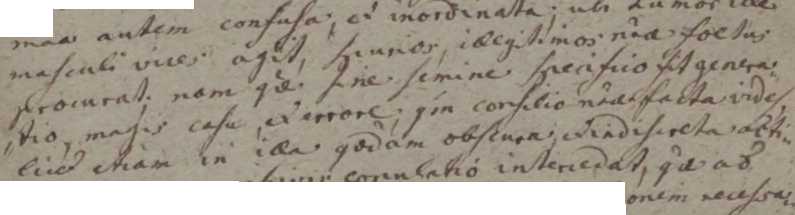 maa autem confusa, et inordinata; ubi humor ille
masculi vices agit, spurios, illegitimos nrae foetus
procurat. nam qae sine semine specifico fit genera-
tio, magis casu, et errore, qm consilio nrae facta vide-
licet etiam in illa qodam obscura, et indiscreta acti-
copulatio intercedat, qae ad
onem necessa-